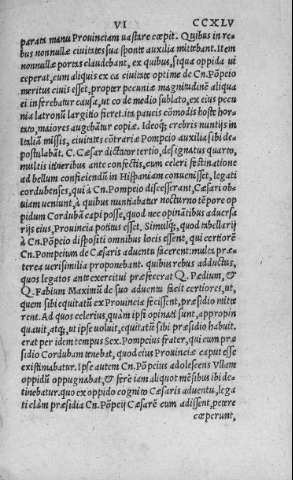 VI CCXLV
parata manu Prouinciam uastare cœpit. Quibus in re
bus nonnullæ ciuitates sua sponte auxilia mittebant. Item
nonnullæ portas claudebant, ex quibus, siqua oppida ui
ceperat, cum aliquis ex ea ciuitate optime de Cn. Pōpeio
meritus ciuis esset, propter pecuniæ magnitudinē aliqua
ei inferebatur causa, ut eo de medio sublato, ex eius pecu
nia latronū largitio fieret. ita paucis cōmodis hoste hor
tato, maiores augebātur copiæ. Ideoq; crebris nuntijs in
Italiā missis, ciuitates cōtrariæ Pompeio auxilia sibi de=
postulabāt. C. Cæsar dictator tertio, designatus quarto,
multis itineribus ante confectis, cum celeri festinatione
ad bellum conficiendū in Hispaniam conuenisset, legati
cordubenses, qui à Cn. Pompeio discesserant, Cæsari ob
uiam ueniunt, à quibus nuntiabatur nocturno tēpore op
pidum Cordubā capi posse, quod nec opinātibus aduersa
rijs eius, Prouincia potitus esset, Simulq; quod tabellarij
à Cn. Pōpeio dispositi omnibus locis essent, qui certiorē
Cn. Pompeium de Cæsaris aduentu facerent: multa præ
terea uerisimilia proponebant. quibus rebus adductus,
quos legatos ante exercitui præfecerat Q. Pædium, &
Q. Fabium Maximū de suo aduentu facit certiores, ut,
quem sibi equitatū ex Prouincia fecissent, præsidio mitte
rent. Ad quos celerius, quàm ipsi opinati sunt, appropin
quauit, atq; ut ipse uoluit, equitatū sibi præsidio habuit.
erat per idem tempus Sex. Pompeius frater, qui cum præ
sidio Cordubam tenebat, quod eius Prouinciæ caput esse
existimabatur. Ipse autem Cn. Pōpeius adolescens Vllam
oppidū oppugnabat, & ferè iam aliquot mēsibus ibi de=
tinebatur. quo ex oppido cognito Cæsaris aduentu, lega
ti clàm præsidia Cn. Pōpeij Cæsarē cum adissent, petere
cœperunt,